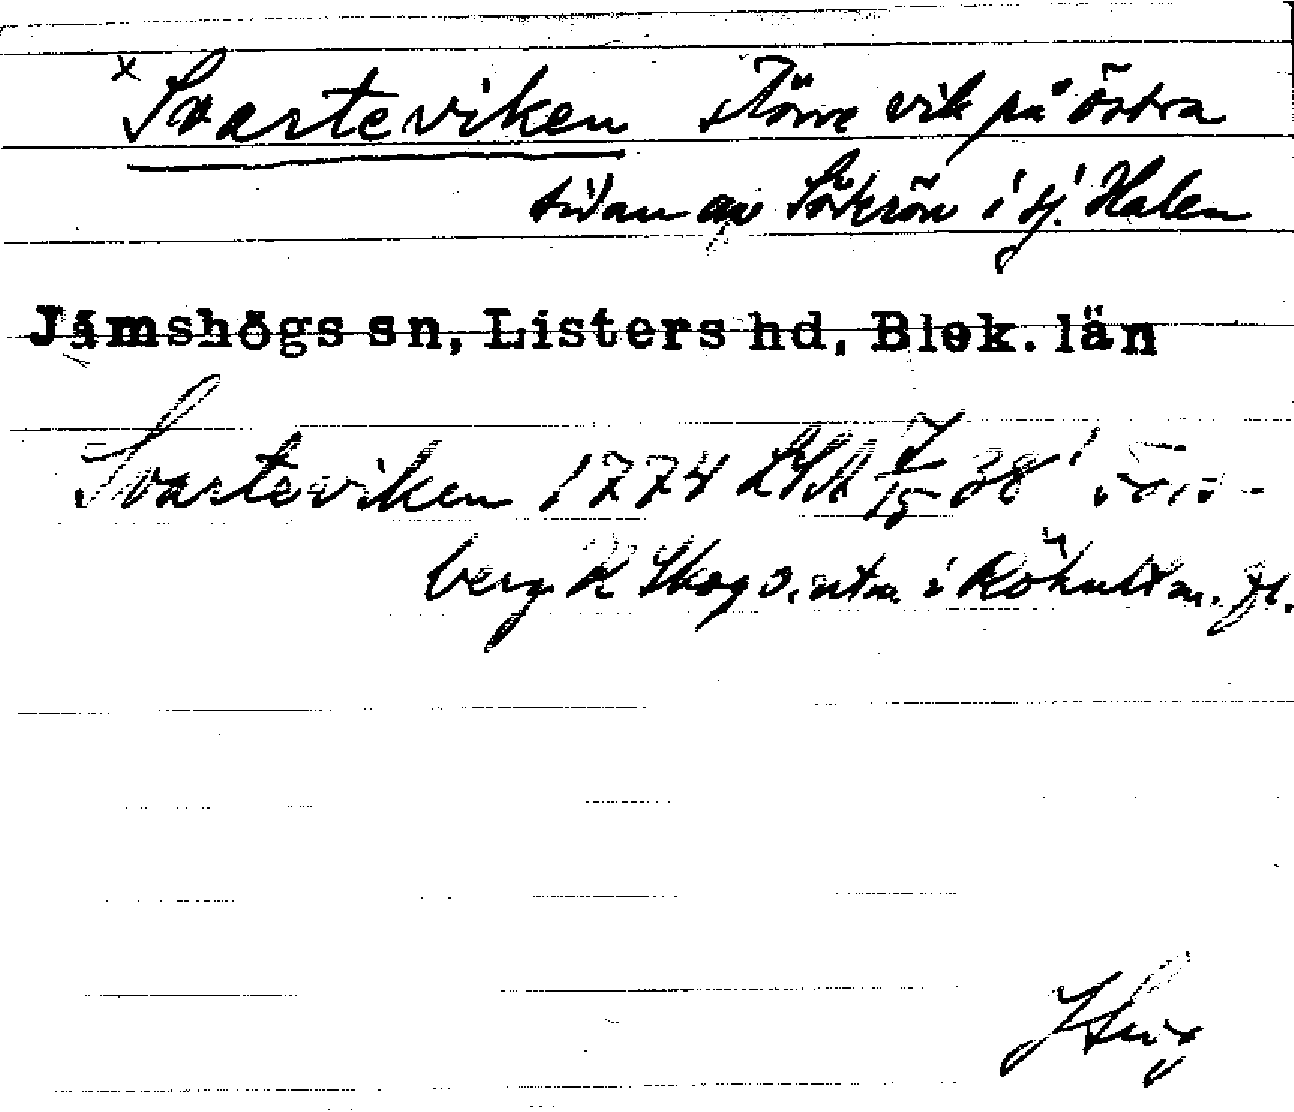 x Svarteviken större vik på östra
sidan av Sörkrön i sj. Halen
Jämshögs sn, Listers hd, Blek. län
Svarteviken 1774 LSA 7/15 38
berg R Skog o. utm i Röhult m. fl.